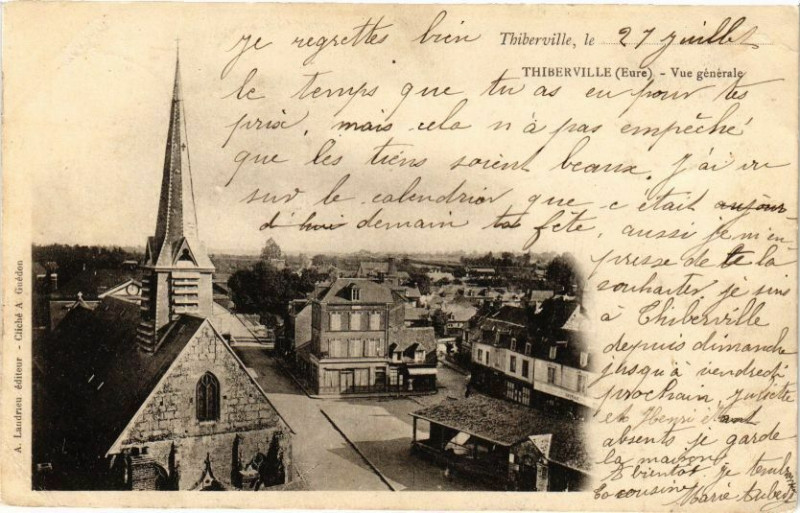 Thiberville, le 27 Juillet
THIBERVILLE (Eure) - Vue générale
je regrettes bien
le temps que tu as eu pour tes
prix, mais cela n'a pas empêché
que les tiens soient beaux. J'ai vu
sur le calendrier que c'était aujour
d'hui demain ta fête, aussi je m'em
presse de te la
souhaiter, je suis
à Thiberville
depuis dimanche
jusqu'à vendredi
prochain. Juliette
et Henri étant
absents je garde
la maison
A bientôt je
Ta cousine Marie
A. Landrieu éditeur - Cliché A Guédon